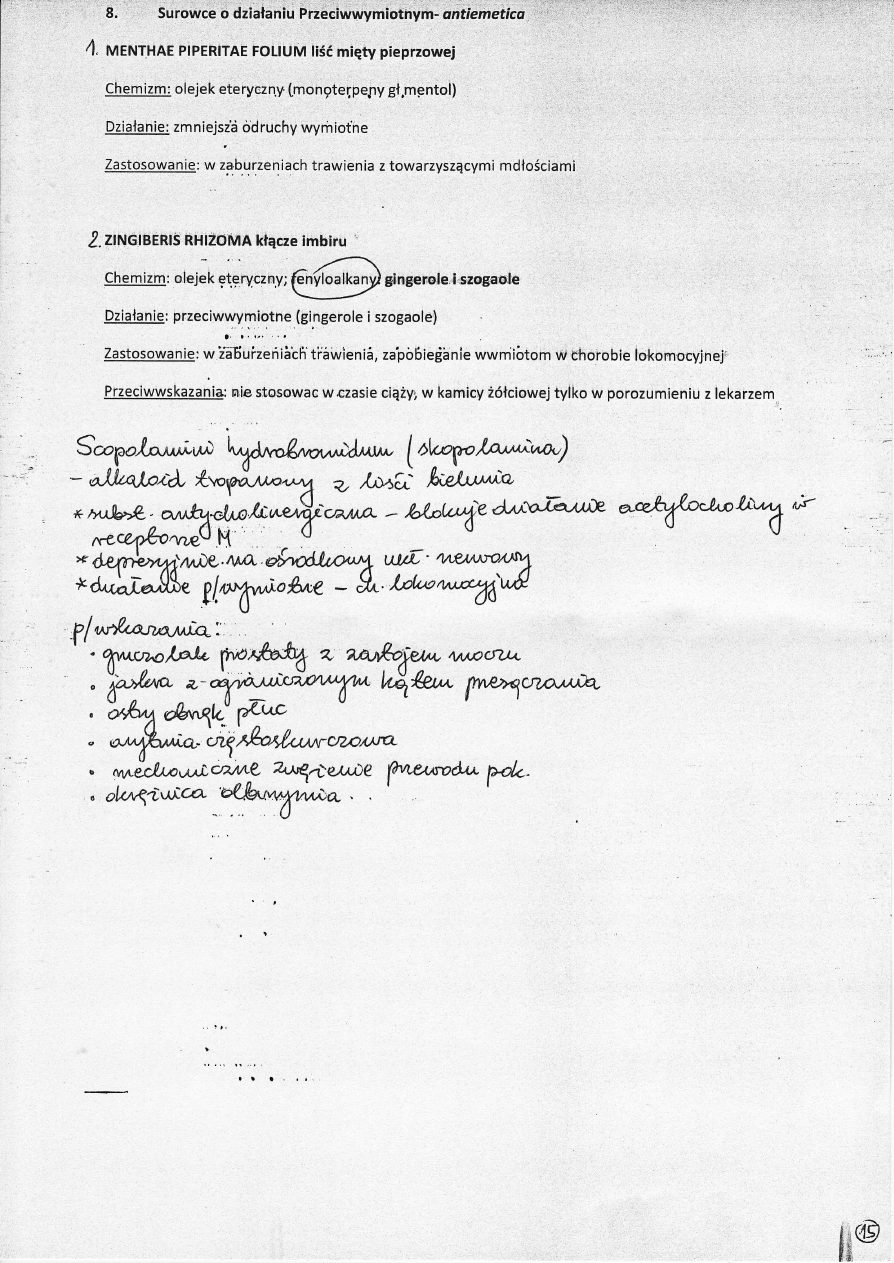 8. Surowce o działaniu Przeciwwymiotnym- antiemetica
1. MENTHAE PIPERITAE FOLIUM liść mięty pieprzowej
Chemizm: olejek eteryczny (monoterpeny gł,mentol)
Działanie: zmniejsza odruchy wymiotne
Zastosowanie: w zaburzeniach trawienia z towarzyszącymi mdłościami
2. ZINGIBERIS RHIZOMA kłącze imbiru
Chemizm: olejek eteryczny; fenyloalkany: gingerole i szogaole
Działanie: przeciwwymiotne (gingerole i szogaole)
Zastosowanie: w zaburzeniach trawienia, zapobieganie wwmiotom w chorobie lokomocyjnej
Przeciwwskazania: nie stosowac w czasie ciąży, w kamicy żółciowej tylko w porozumieniu z lekarzem
Scopolamini hydrobromidum (skopolamina)
- alkaloid tropanowy z liści bielunia
* subst. antycholinergiczna - blokuje działanie acetylocholiny w
receptorze M
* depresyjnie na ośrodkowy ukł. nerwowy
* działanie p/wymiotne - ch. lokomocyjna
p/wskazania:
• gruczolak prostaty z zastojem moczu
• jaskra z ograniczonym kątem przesączania
• ostry obrzęk płuc
• arytmia częstoskurczowa
• mechaniczne zwężenie przewodu pok.
• okrężnica olbrzymia.
15